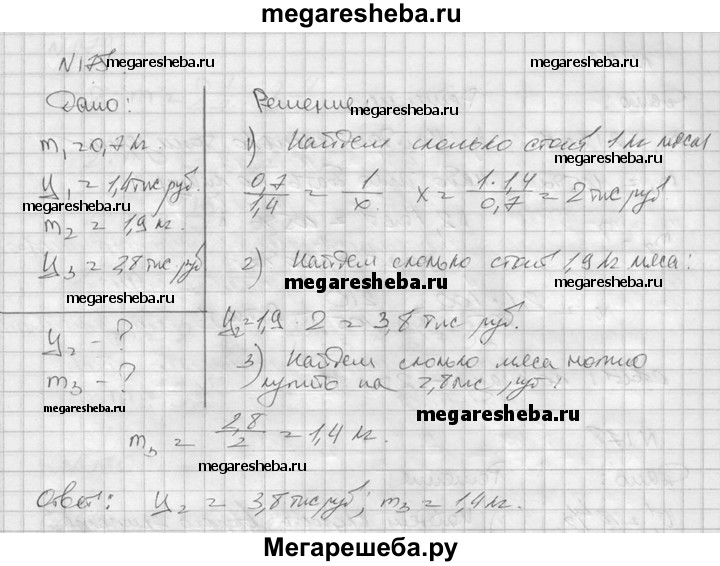 megaresheba.ru
N 175.
megaresheba.ru
Дано:
Решение:
megaresheba.ru
m₁ = 0,7 кг
1) Найдем сколько стоит 1 кг мяса
megaresheba.ru
Ц₁ = 1,4 тис руб.
0,7/1,4 = 1/x x = 1·1,4/0,7 = 2 тис руб
megaresheba.ru
megaresheba.ru
m₂ = 1,9 кг.
Ц₃ = 2,8 тис руб
2) Найдем сколько стоит 1,9 кг мяса:
megaresheba.ru
megaresheba.ru
Ц₂ = 1,9 · 2 = 3,8 тис руб.
Ц₂ - ?
3) Найдем сколько мяса можно
m₃ - ?
купить на 2,8 тис руб:
megaresheba.ru
megaresheba.ru
m₃ = 2,8/2 = 1,4 кг.
megaresheba.ru
Ответ: Ц₂ = 3,8 тис руб; m₃ = 1,4 кг.
megaresheba.ru
megaresheba.ru
Мегарешеба.ру